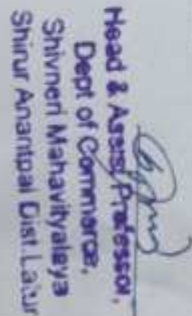 Head & Assist Professor,
Dept of Commerce,
Shivneri Mahavityalaya
Shirur Anantpal Dist Latur